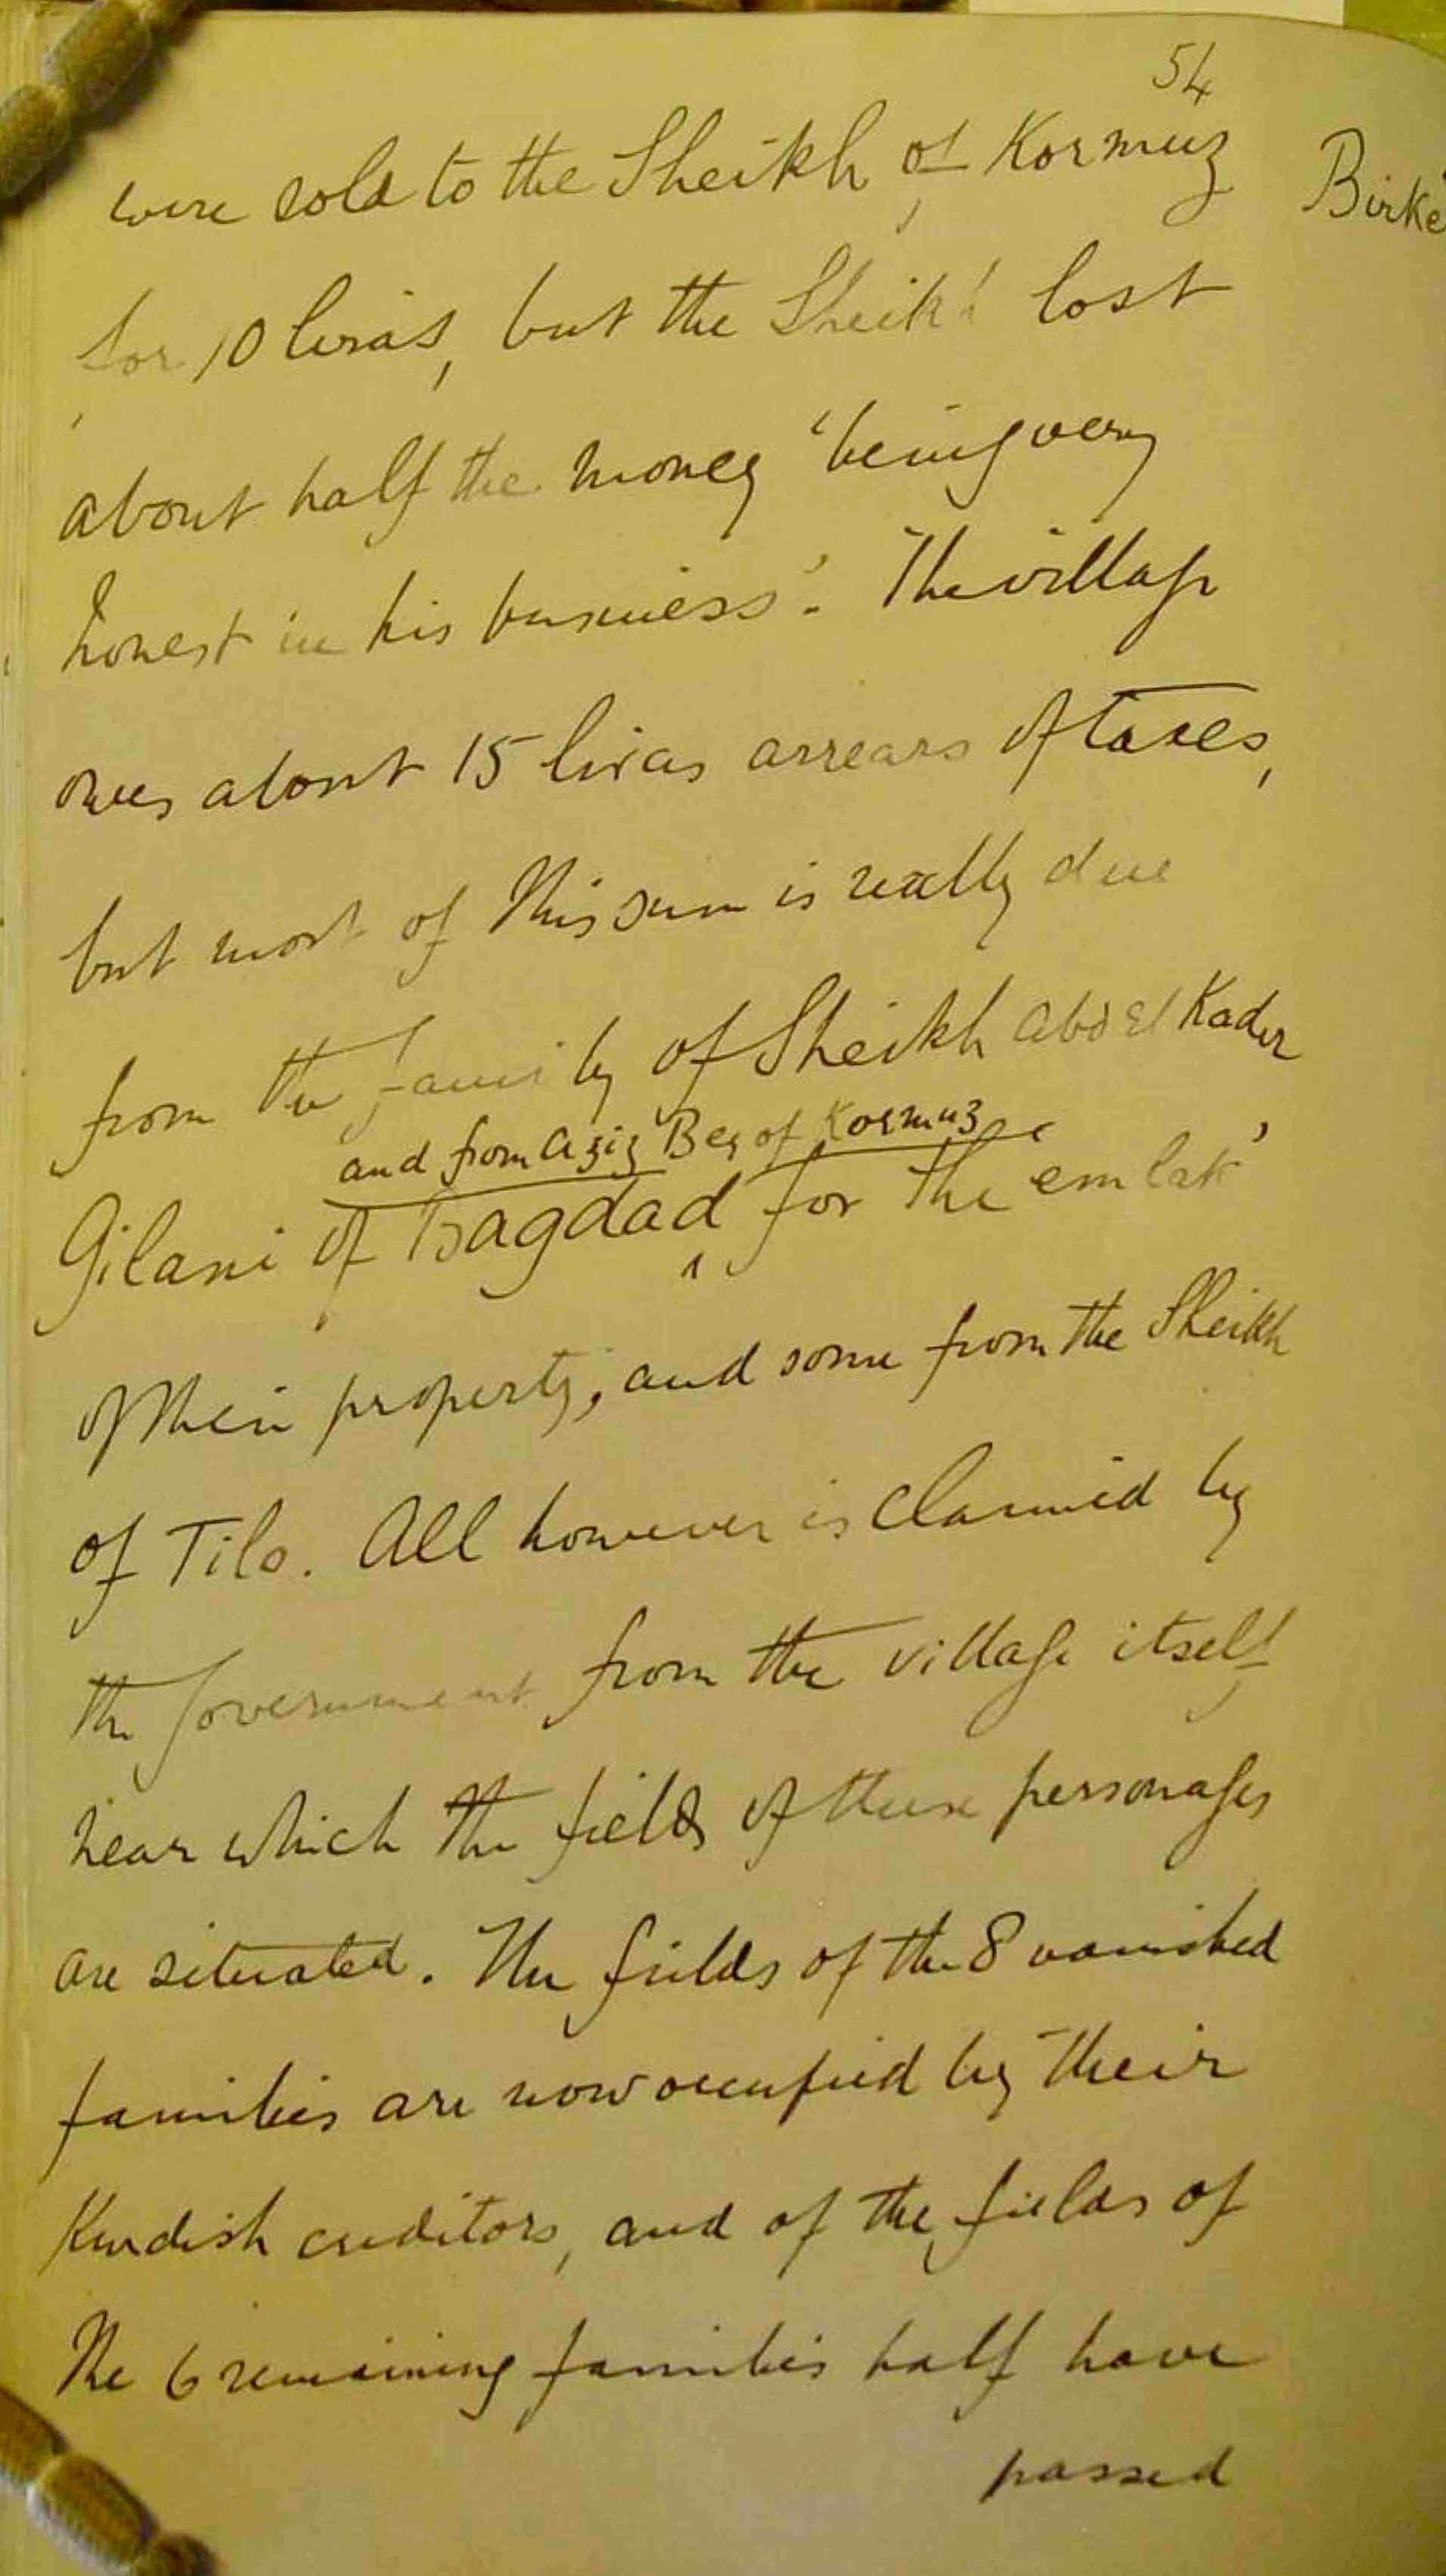 54
were sold to the Sheikh of Kormuz
Birke
for 10 liras, but the Sheikh lost
about half the money 'being very
honest in his business'. The village
owes about 15 liras arrears of taxes,
but most of this sum is really due
from the family of Sheikh Abd el Kader
and from Aziz Beg of Kormuz
Gilani of Bagdad for the 'emlak'
of their property, and some from the Sheikh
of Tilo. All however is claimed by
the Government from the village itself
near which the fields of these personages
are situated. The fields of the 8 vanished
families are now occupied by their
Kurdish creditors, and of the fields of
the 6 remaining families half have
passed